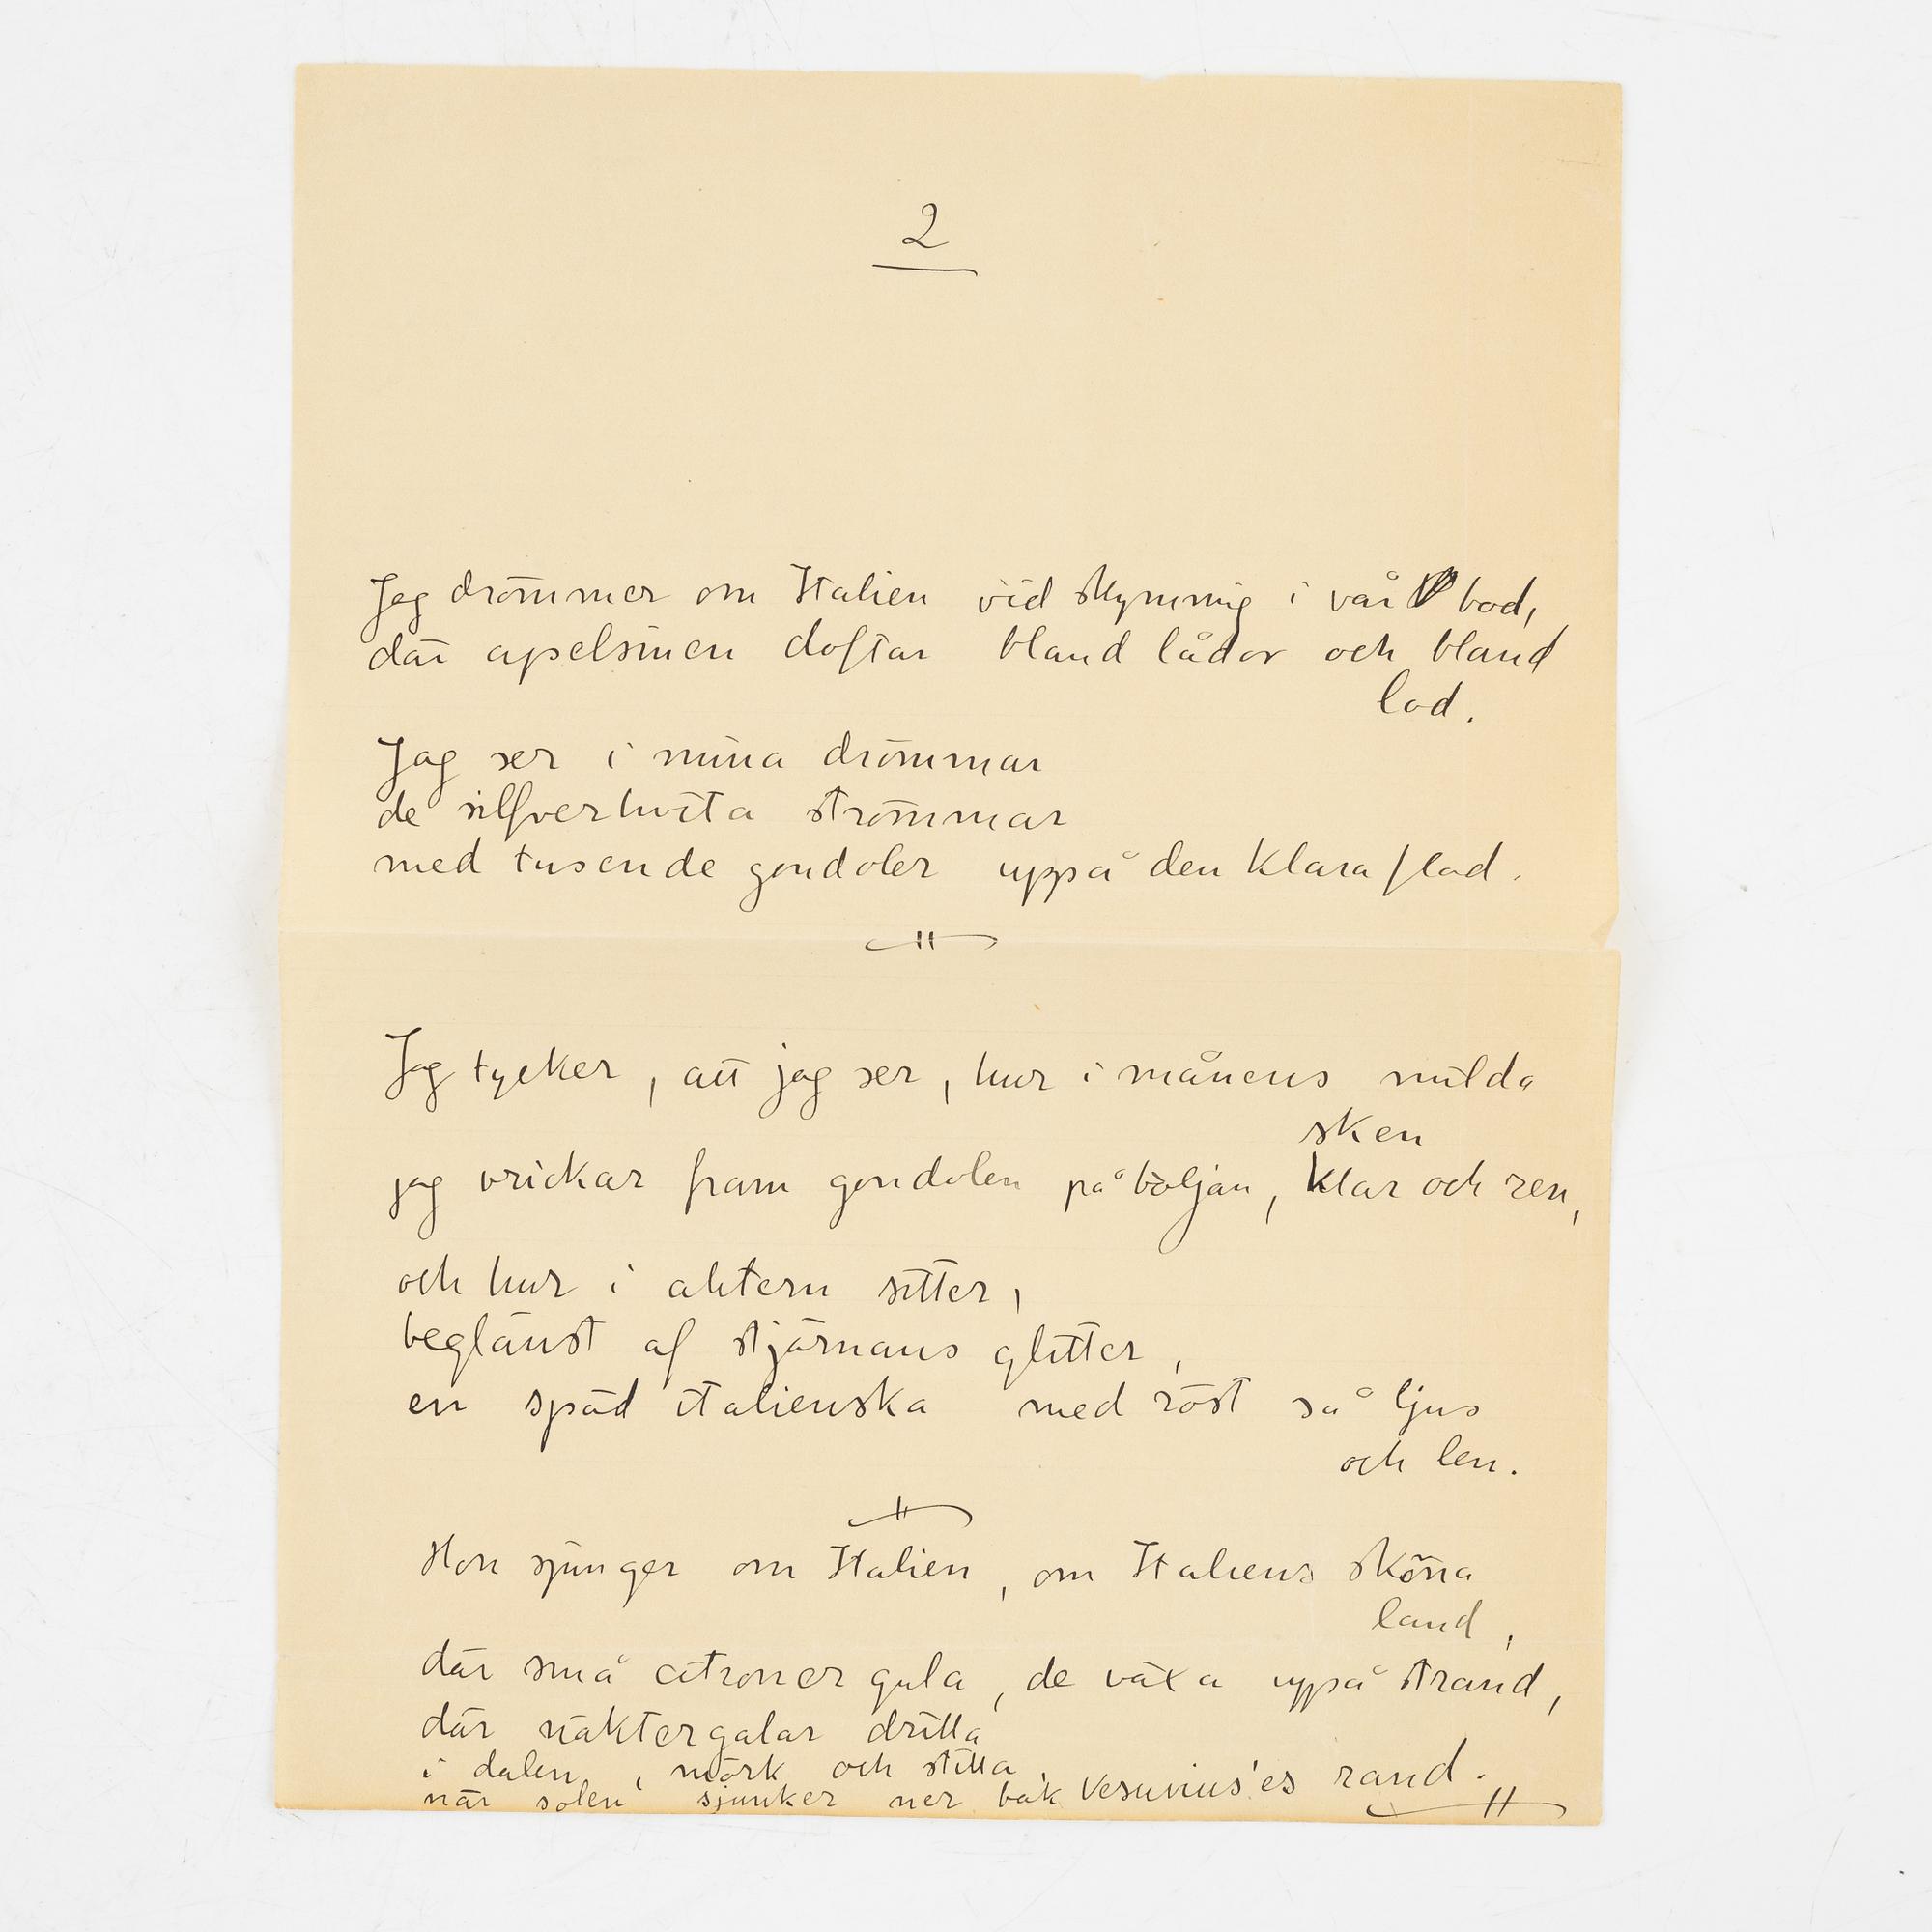 2
Jag drömmer om Italien vid skymning i vår bod,
där apelsinen doftar bland lådor och bland
lod.
Jag ser i mina drömmar
de silfverhvita strömmar
med tusende gondoler uppå den klara flod.
Jag tycker, att jag ser, hur i månens milda
sken
jag vrickar fram gondolen på böljan, klar och ren,
och hur i aktern sitter,
beglänst af stjärnans glitter,
en späd italienska med röst så ljus
och len.
Hon sjunger om Italien, om Italiens sköna
land,
där små citroner gula, de växa uppå strand,
där näktergalar drilla
i dalen, mörk och stilla,
när solen sjunker ner bak Vesuvius'es rand.